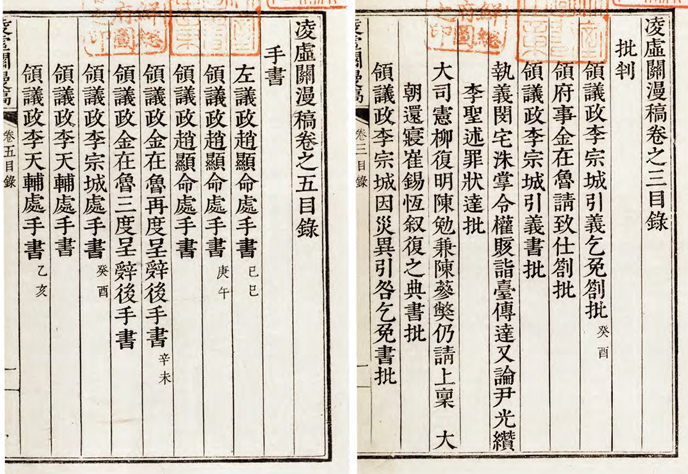 凌虛關漫稿卷之三目錄
批判
領議政李宗城引義乞免劄批 癸酉
領府事金在魯請致仕劄批
領議政李宗城引義書批
執義閔宅洙掌令權賅詣臺傳達又論尹光纘
李聖述罪狀達批
大司憲柳復明陳勉兼陳蔘弊仍請上稟 大
朝還寢崔錫恆叙復之典書批
領議政李宗城因災異引咎乞免書批
卷三目錄
一
凌虛關漫稿卷之五目錄
手書
左議政趙顯命處手書 己巳
領議政趙顯命處手書 庚午
領議政趙顯命處手書
領議政金在魯再度呈辭後手書 辛未
領議政金在魯三度呈辭後手書
領議政李宗城處手書 癸酉
領議政李天輔處手書
領議政李天輔處手書 乙亥
凌虛關漫稿
卷五目錄
一